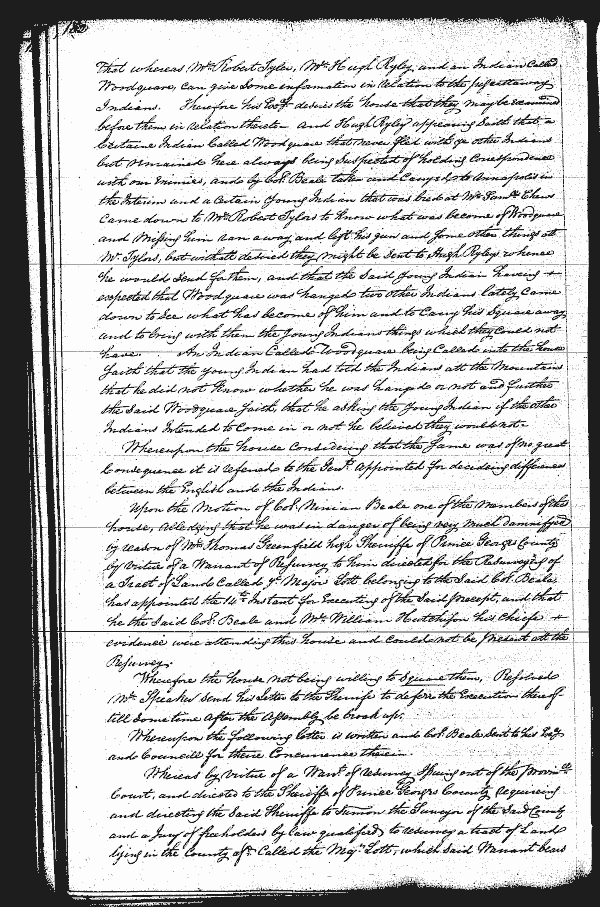 182
That whereas Mr. Robert Tyler, Mr. Hugh Ryley, and an Indian Called
Woodquare, can give some information in relation to the
Indians. Therefore his Excy. desires the house that they may be examined
before them in relation thereto. and Hugh Ryley appearing Saith that a
Certaine Indian Called Woodquare that never fled with ye other Indians
but remained here always being Suspected of holding Correspondence
with our Enimies, and by Col. Beale taken and Carryed to Annapolis in
the Interim and a Certain Young Indian that was bred at Mr. Saml. Chews
Came down to Mr. Robert Tylors to Know what was become of Woodquare
and Missing him ran away, and left his gun and some other things att
Mr. Tylors, but withall desired they might be Sent to Hugh Ryleys whence
he would Send for them, and that the Said Young Indian having
expected that Woodquare was hanged two other Indians lately Came
down to See what has become of him and to Carry his Squaw away
and to bring with them the Young Indians things which they Could not
have. An Indian Called Woodquare being Called into the house
Saith that the Young Indian had told the Indians att the Mountains
that he did not Know whether he was hanged or not and further
the Said Woodquare Saith, that he asking the Young Indian if the other
Indians Intended to Come in or not he believed they would not.
Whereupon the house Considering that the Same was of no great
Consequence it is referred to the Gent. appointed for deciding differences
between the English and the Indians.
Upon the Motion of Col. Ninian Beale one of the Members of this
house, alledging that he was in danger of being very much damnifyed
by reason of Mr. Thomas Greenfield high Sheriffe of Prince Georges County
by Virtue of a Warrant of Resurvey to him directed for the Resurveying of
a Tract of Land Called ye Major Lott belonging to the Said Col. Beale
has appointed the 14th. Instant for Executing of the Said precept, and that
he the Said Col. Beale and Mr. William Hutchison his Chiefe
evidence were attending this house and Could not be present att the
Resurvey.
Wherefore the house not being willing to Square them, Resolved
Mr. Speaker Send his Letter to the Sheriffe to deferr the Execution thereof
till Some time after the Assembly be broak up.
Whereupon the following letter is written and Col. Beale Sent to his Excy
and Councill for their Concurrence therein.
Whereas by Virtue of a Warrt. of resurvey Issuing out of the Provinll.
Court, and directed to the Sheriffe of Prince Georges County requireing
and directing the Said Sheriffe to Sumon the Surveyor of the Said County
and a Jury of freeholders by law qualifyed, to resurvey a tract of Land
lying in the County afd. Called the Majr. Lott, which Said Warrant bears